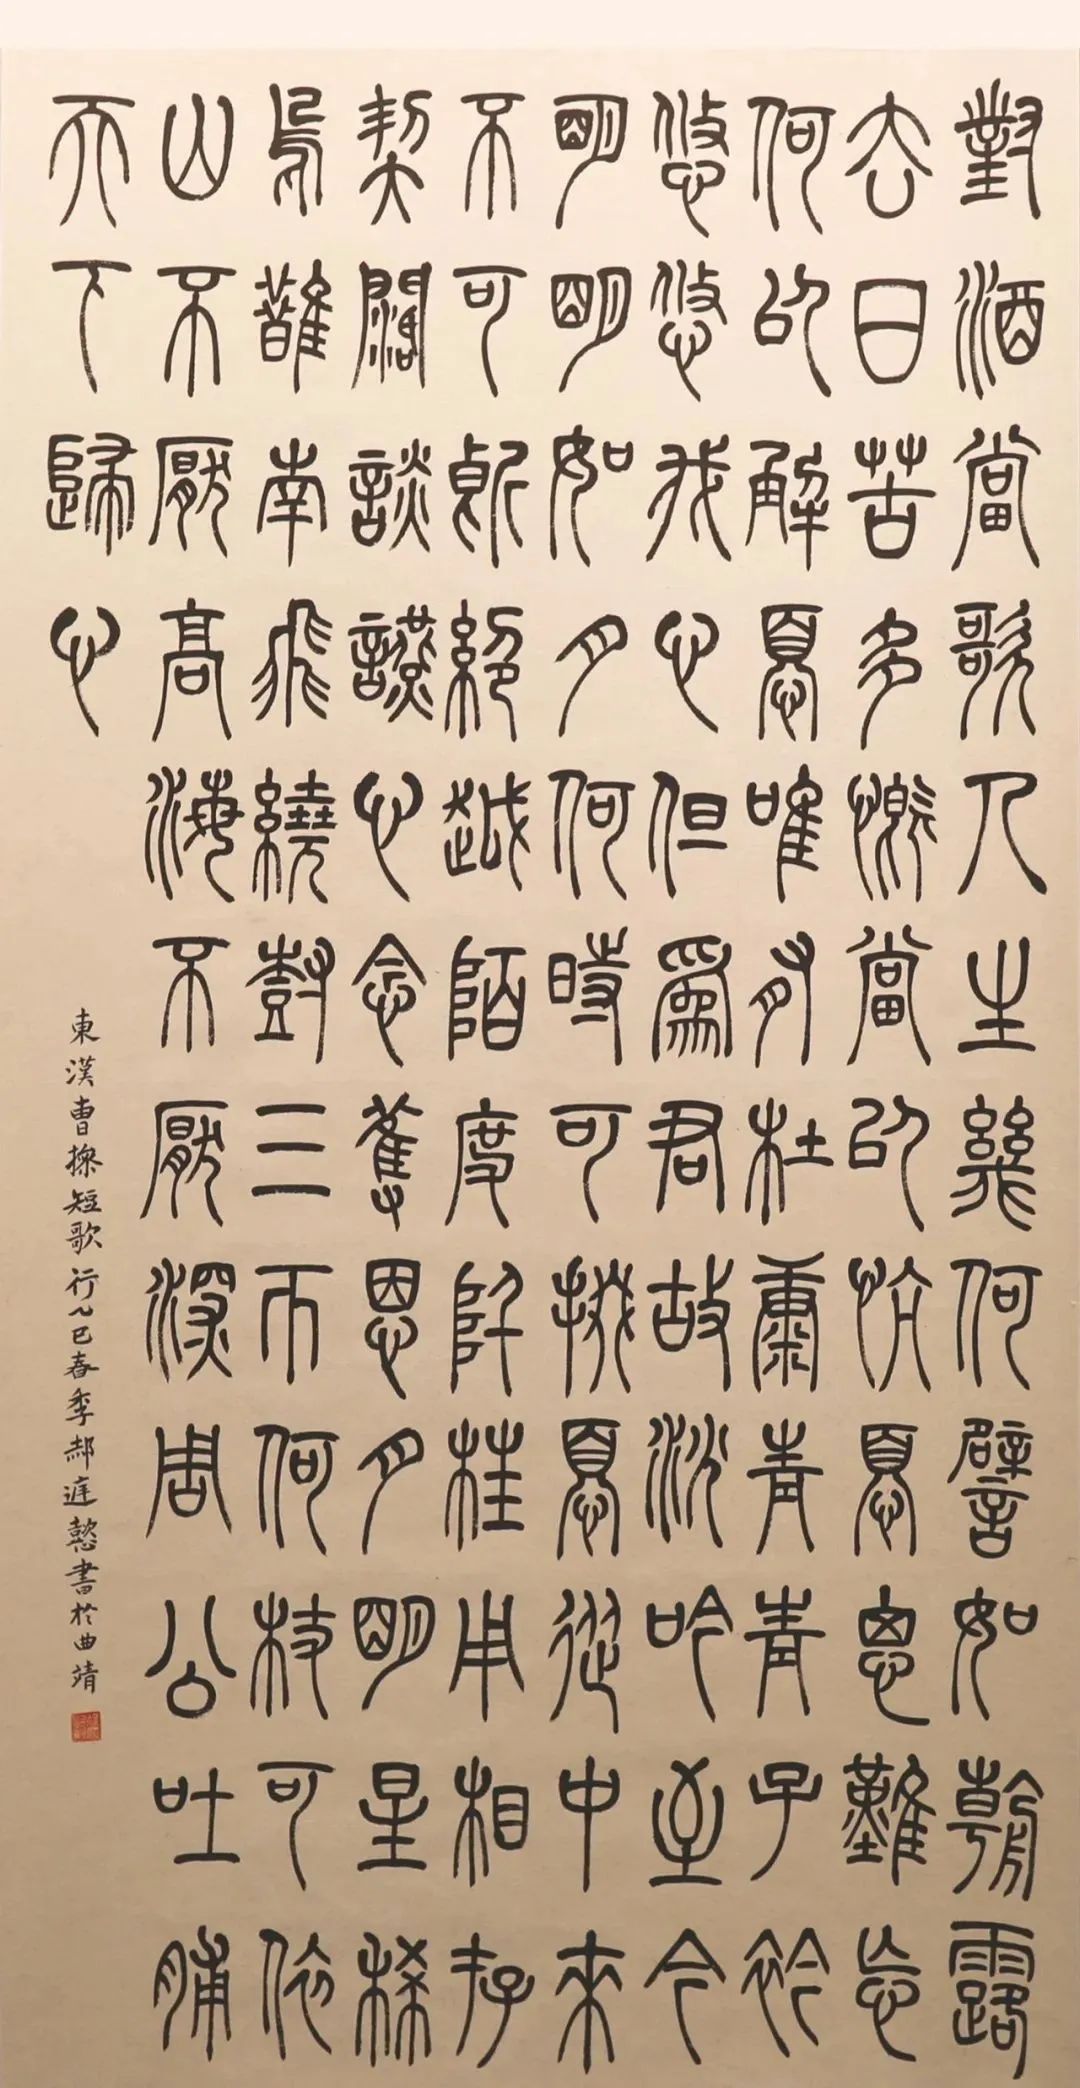 對酒當歌人生幾何譬如朝露
去日苦多慨當以忼憂思難忘
何以解憂唯有杜康青青子衿
悠悠我心但爲君故沈吟至今
明明如月何時可掇憂從中來
不可斷絕越陌度阡枉用相存
契闊談讌心念舊恩月明星稀
烏鵲南飛繞樹三匝何枝可依
山不厭高海不厭深周公吐脯
天下歸心
東漢曹操短歌行乙巳春季郝庭懿書於曲靖